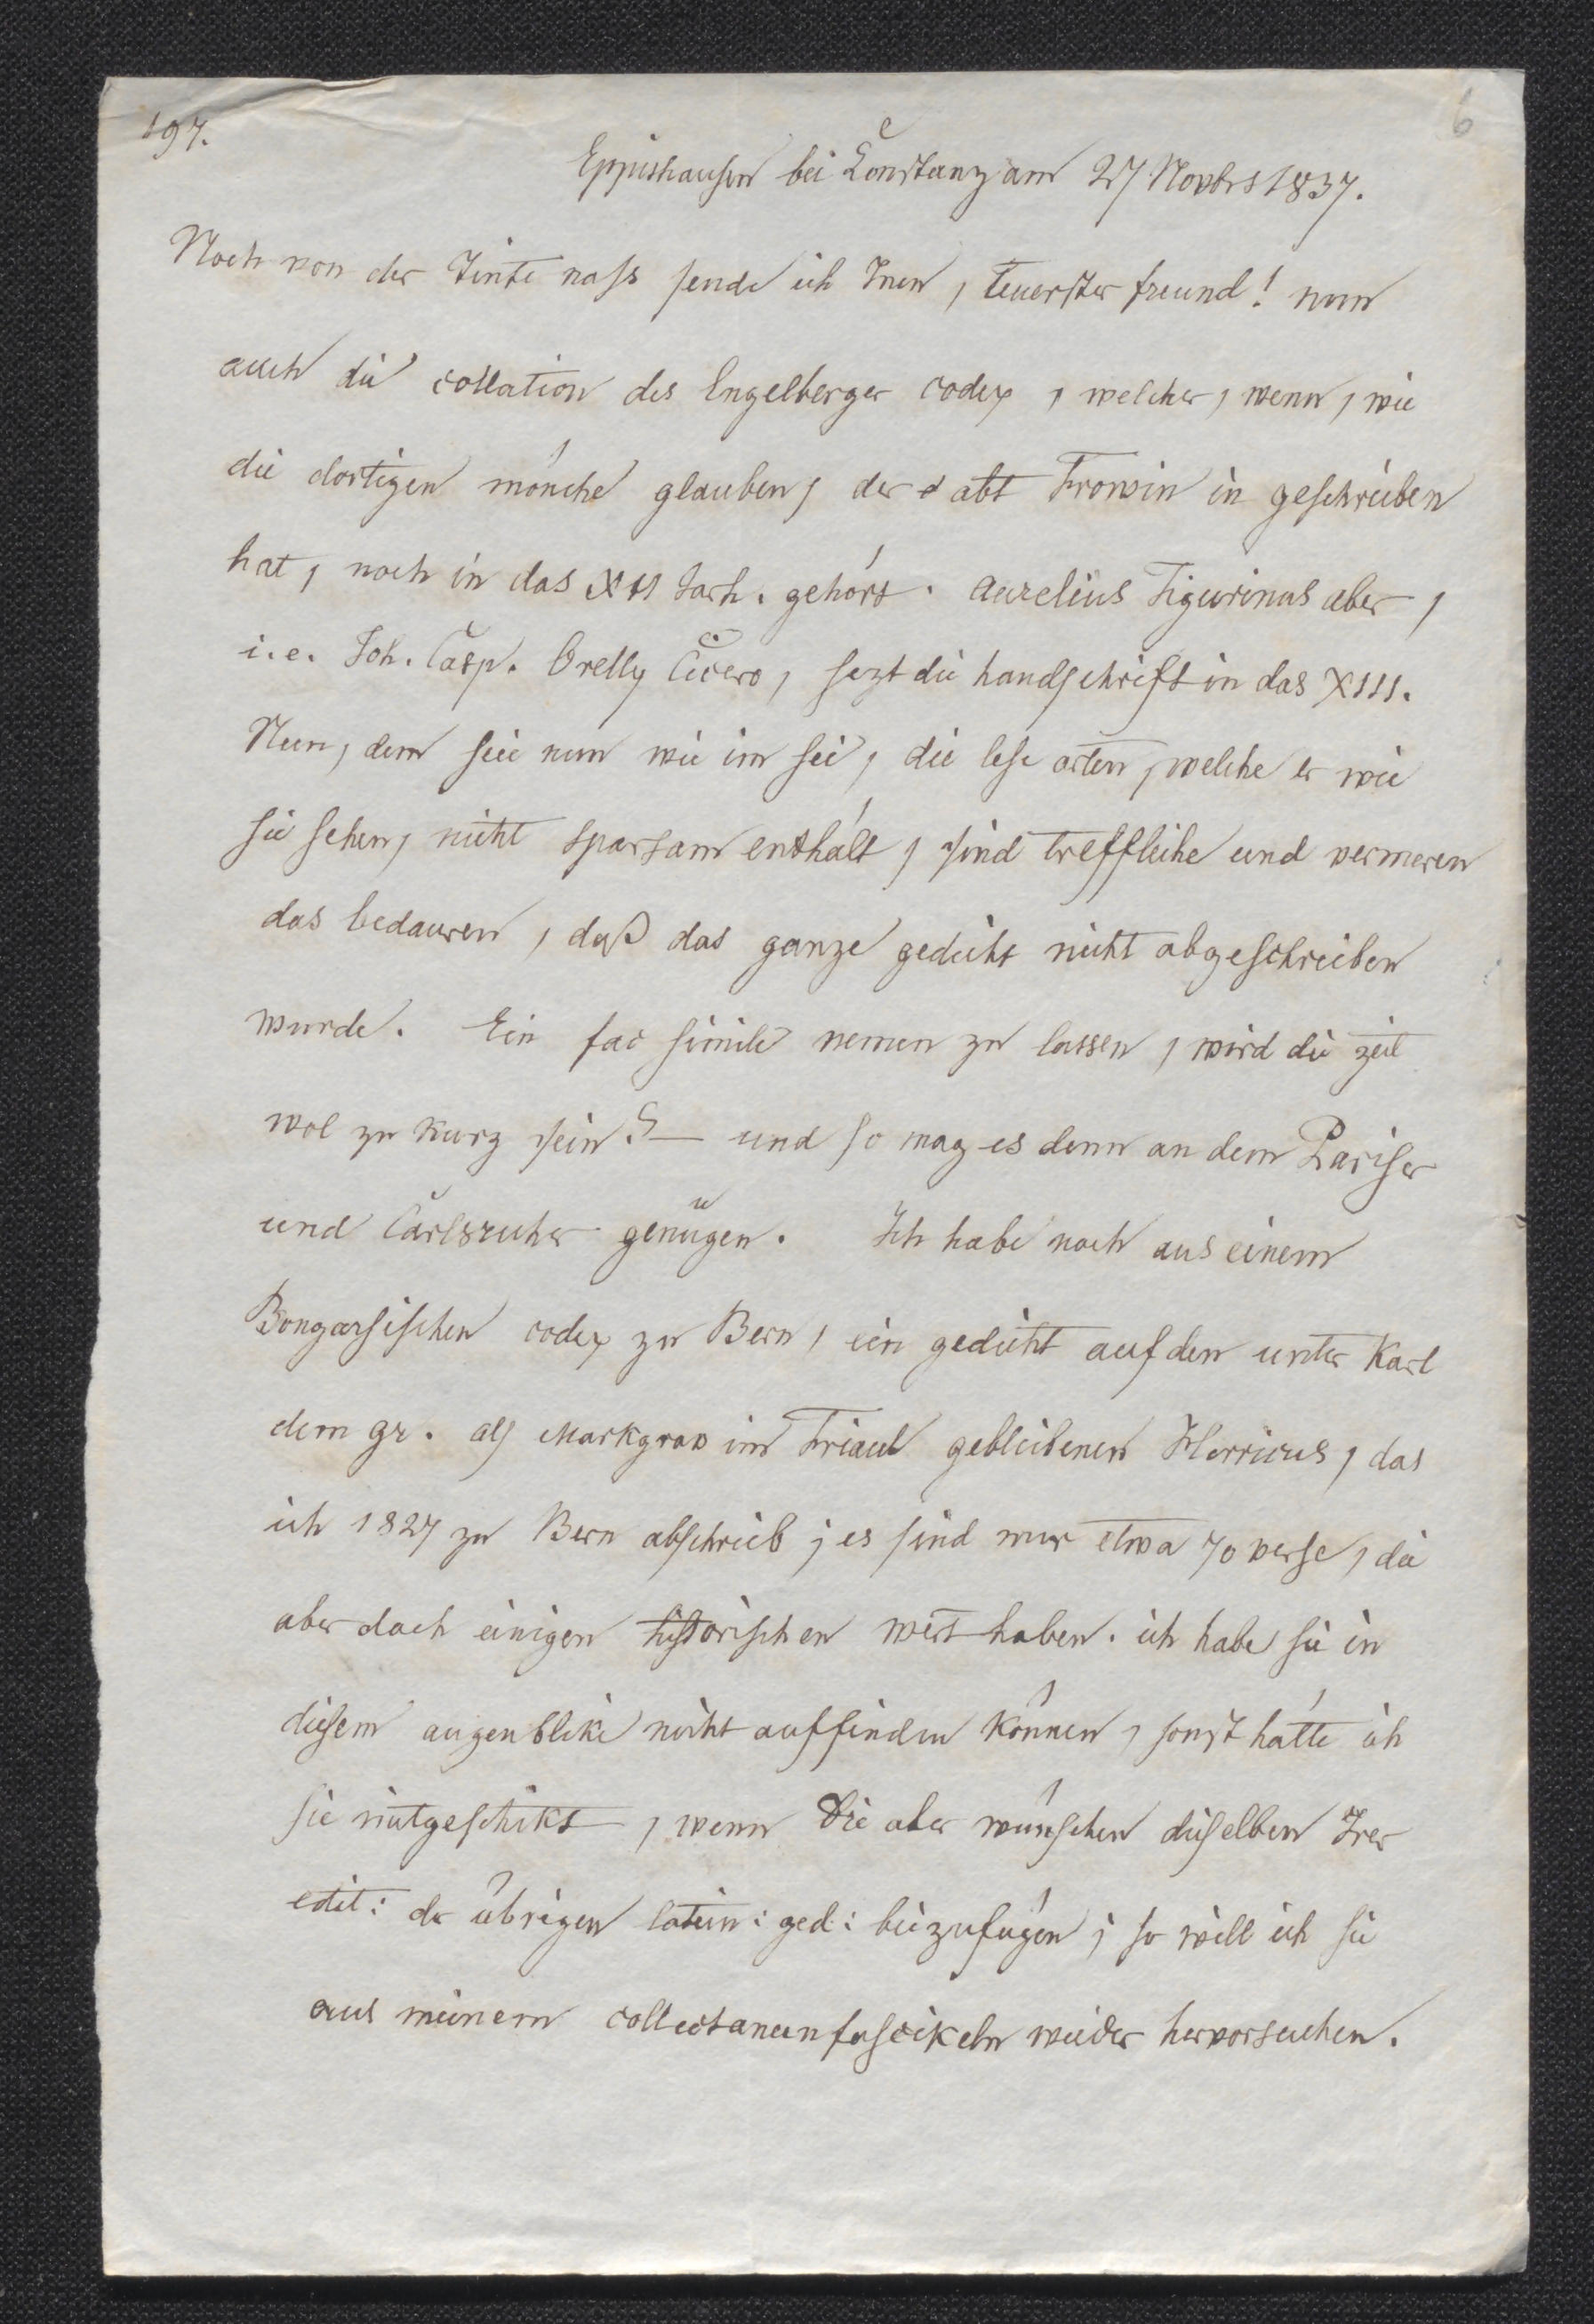 197.
6
Eppishausen bei Constanz am 27 Novbrs 1837.
Noch von der Tinte nass sende ich Inen, teuerster freund! nun
auch die collation des Engelberger codex, welcher, wenn, wie
die dortigen mönche glauben, der abt Frowin in geschrieben
hat, noch in das XII Jarh. gehört. Aurelius Tigurinus aber,
i.e. Joh. Casp. Orelly Cicero, sezt die handschrift in das XIII.
Nun, dem seie nun wie im sei, die lese arten, welche er wie
sie sehen, nicht sparsam enthält, sind treffliche und vermeren
das bedauren, daß das ganze gedicht nicht abgeschrieben
wurde. Ein fac simile nemen zu lassen, wird die zeit
wol zu kurz sein? — und so mag es denn an dem Pariser
und Carlsruher genügen. Ich habe noch aus einem
Bongarsischen codex zu Bern, ein gedicht auf den unter Karl
dem gr. als Markgrav im Friaul gebliebenen Herricus, das
ich 1827 zu Bern abschrieb; es sind nur etwa 70 verse, die
aber doch einigen historischen wert haben. ich habe sie in
diesem augenblike nicht auffinden können, sonst hätte ich
sie mitgeschikt, wenn Sie aber wünschen dieselben Irer
edit: der übrigen latein: ged: beizufügen; so will ich sie
aus meinem collectaneenfascikeln wieder hervorsuchen.